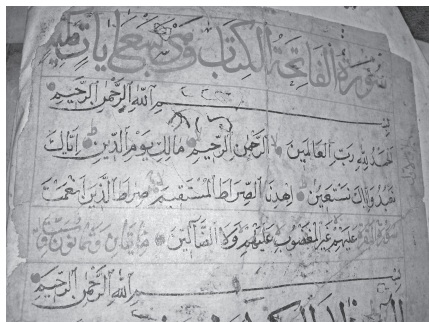 سورة الفاتحة الكتاب وهي سبع آيات
بسم الله الرحمن الرحيم
الحمد لله رب العالمين الرحمن الرحيم مالك يوم الدين إياك
نعبد وإياك نستعين اهدنا الصراط المستقيم صراط الذين أنعمت
عليهم غير المغضوب عليهم ولا الضالين مائتان وثمانون وست
بسم الله الرحمن الرحيم